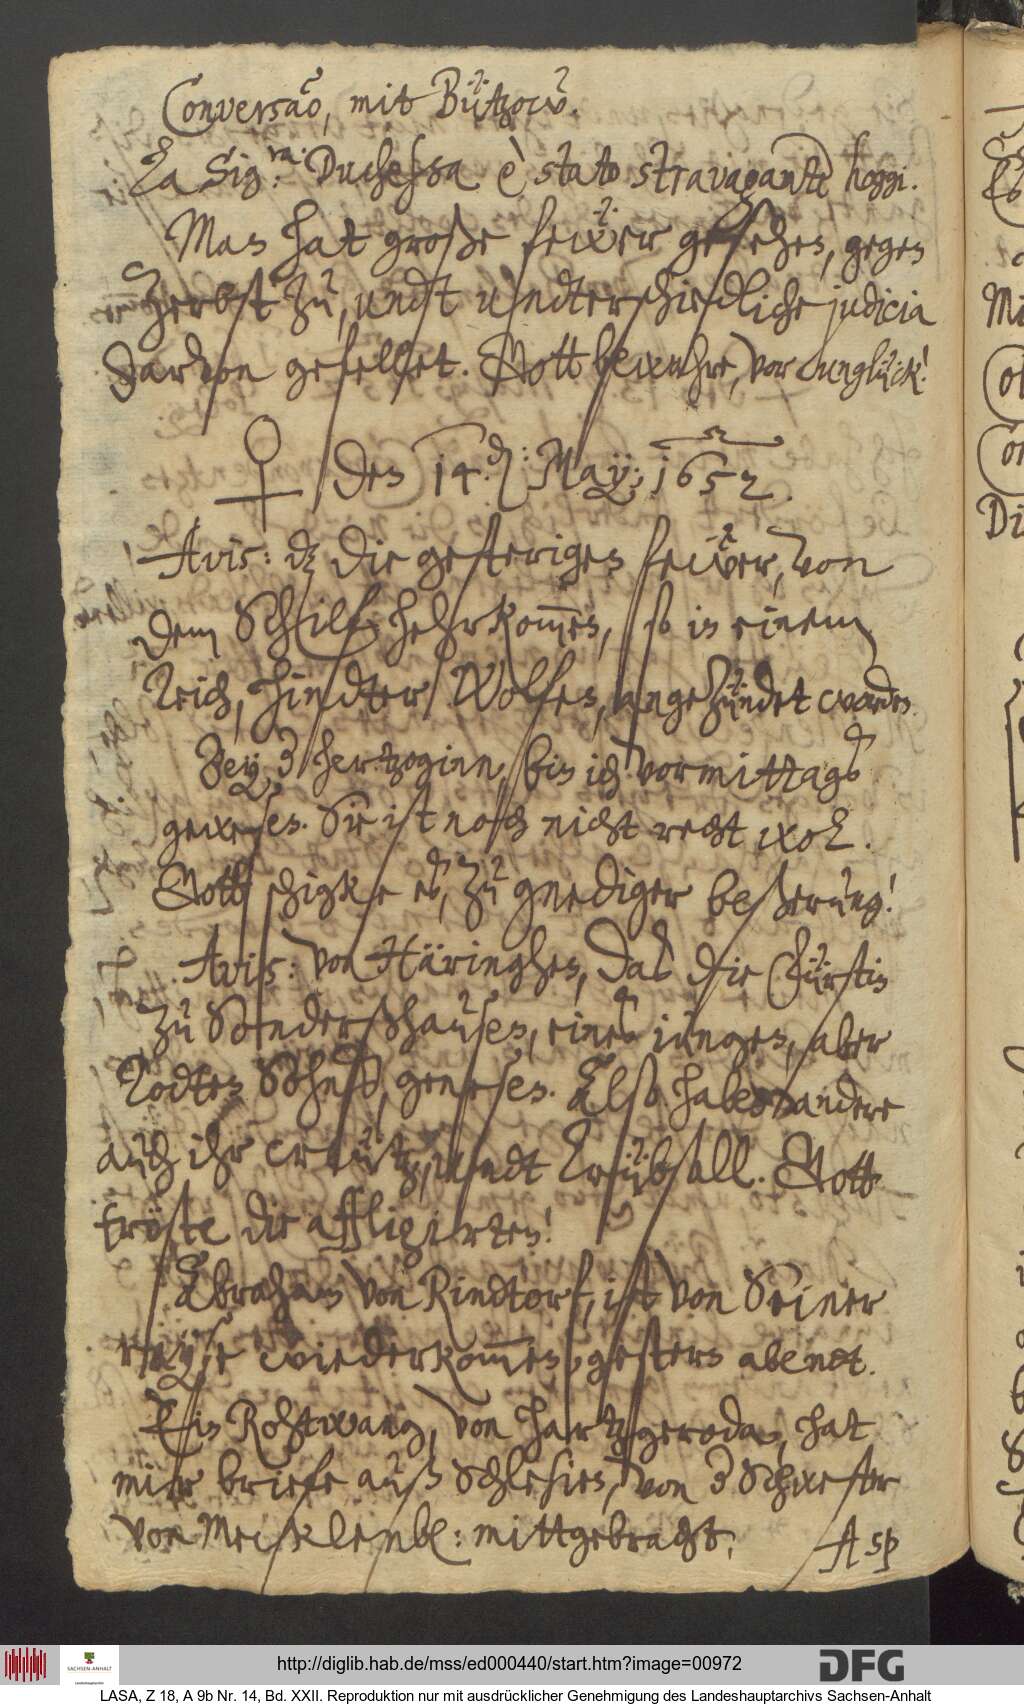 Conversão, mit Bützow.
La Sig:ra: Duchessa è stato stravagante hoggi.
Man hat große feẅer gesehen, gegen
Zerbst zu, undt undterschiedliche judicia
darvon gefellet. Gott bewahre, vor unglück!
♀ den 14.den: May: 1652.
Avis: dz die gesterigen feẅer, von
dem Schilf hehrkom̄en, so in einem
Teich, hindter Wolfen, angezündet worden.
Bey der hertzoginn, bin ich vormittags
gewesen. Sie ist noch nicht recht wol.
Gott schigke es, zu gnediger beßerung!
Avis: von Häringhen, daß die Fürstin
zu Sondershausen, eines iungen, aber
Todten Sohns, genesen. Also haben andere
auch ihr creutz, undt Trübsall. Gott
tröste die affligirten!
Abraham von Rindtorf, ist von Seiner
rayse wiederkom̄en, gestern abendt.
Ein Roßtwang, von Hartzgeroda, hat
mir briefe auß Schlesien, von der Schwester
von Megklenb: mittgebracht.
Asp
http://diglib.hab.de/mss/ed000440/start.htm?image=00972
SACHSEN-ANHALT
DFG
LASA, Z 18, A 9b Nr. 14, Bd. XXII. Reproduktion nur mit ausdrücklicher Genehmigung des Landeshauptarchivs Sachsen-Anhalt